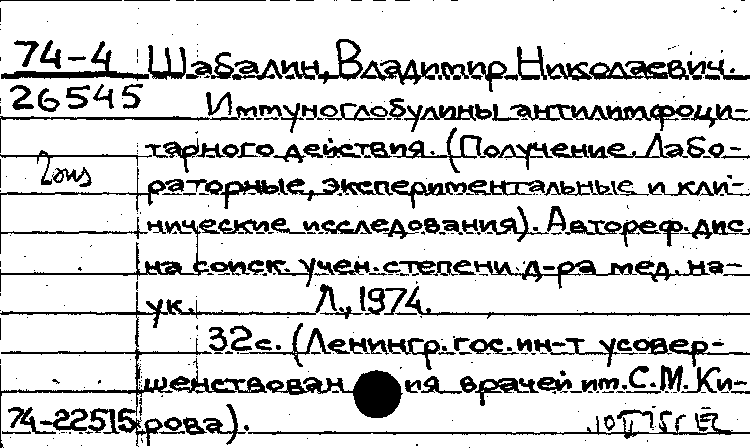 74-4 Шабалин, Владимир Николаевич.
26545 Иммуноглобулины антилимфоци-
тарного действия. (Получение. Лабо-
2 раторные, экспериментальные и кли-
нические исследования). Автореф. дис.
на соиск. учен. степени д-ра мед. на-
ук. Л., 1974.
32с. (Ленингр. гос. ин-т усовер-
шенствования врачей им. С.М. Ки-
74-22515 рова).